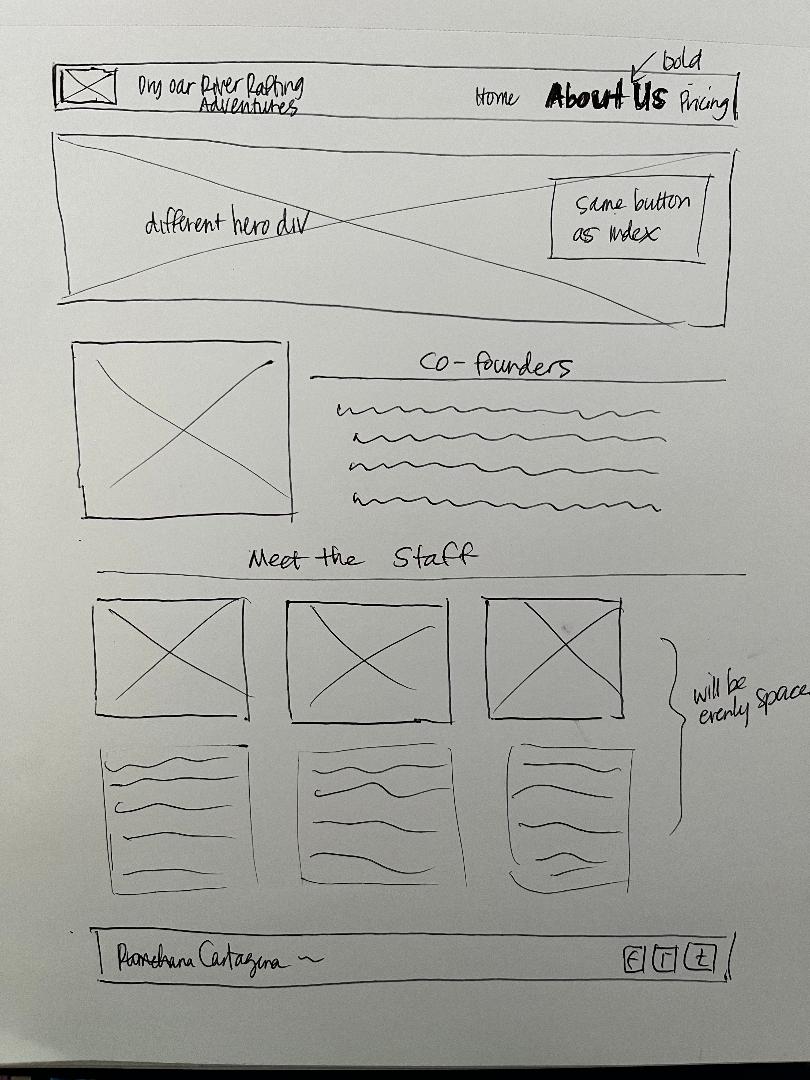 bold
Dry oar River Rafting
Adventures
Home About Us Pricing
different hero div
same button
as index
Co-founders
Meet the Staff
will be
evenly space
Cartagena
f I t